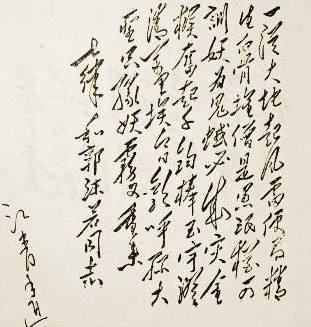 一從大地起风雷便有精
生白骨堆僧是愚氓猶可
訓妖为鬼蜮必成災金
猴奮起千钧棒玉宇澄
清萬里埃今日歡呼孫大
聖只緣妖霧又重来
七律 和郭沫若同志
江青